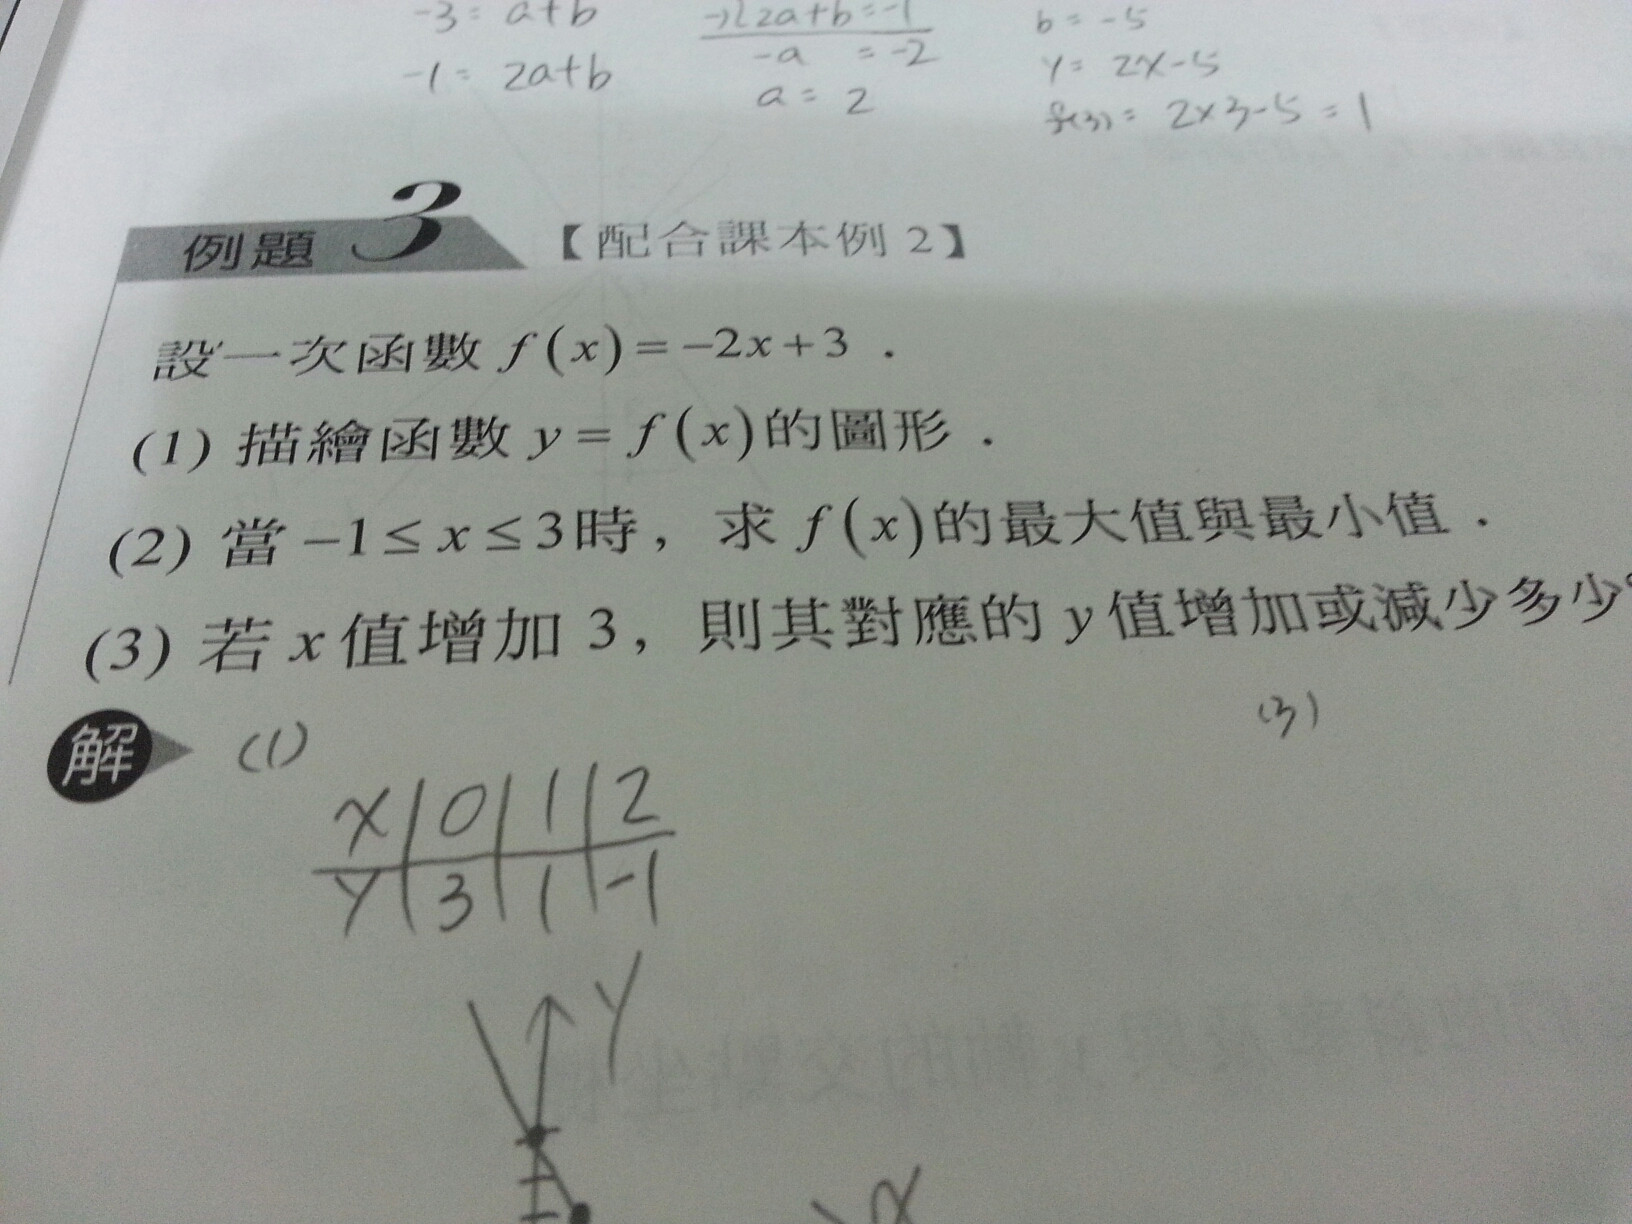 -3 = a+b
-1 = 2a+b
-) 2a+b=-1
-a = -2
a = 2
b = -5
y = 2x-5
f(3) = 2×3-5 = 1
例題 3 【配合課本例 2】
設一次函數 f(x)=-2x+3．
(1) 描繪函數 y=f(x)的圖形．
(2) 當 -1≤x≤3時，求 f(x)的最大值與最小值．
(3) 若 x 值增加 3，則其對應的 y 值增加或減少多少
解 (1)
(3)
x | 0 | 1 | 2
y | 3 | 1 | -1
y
x